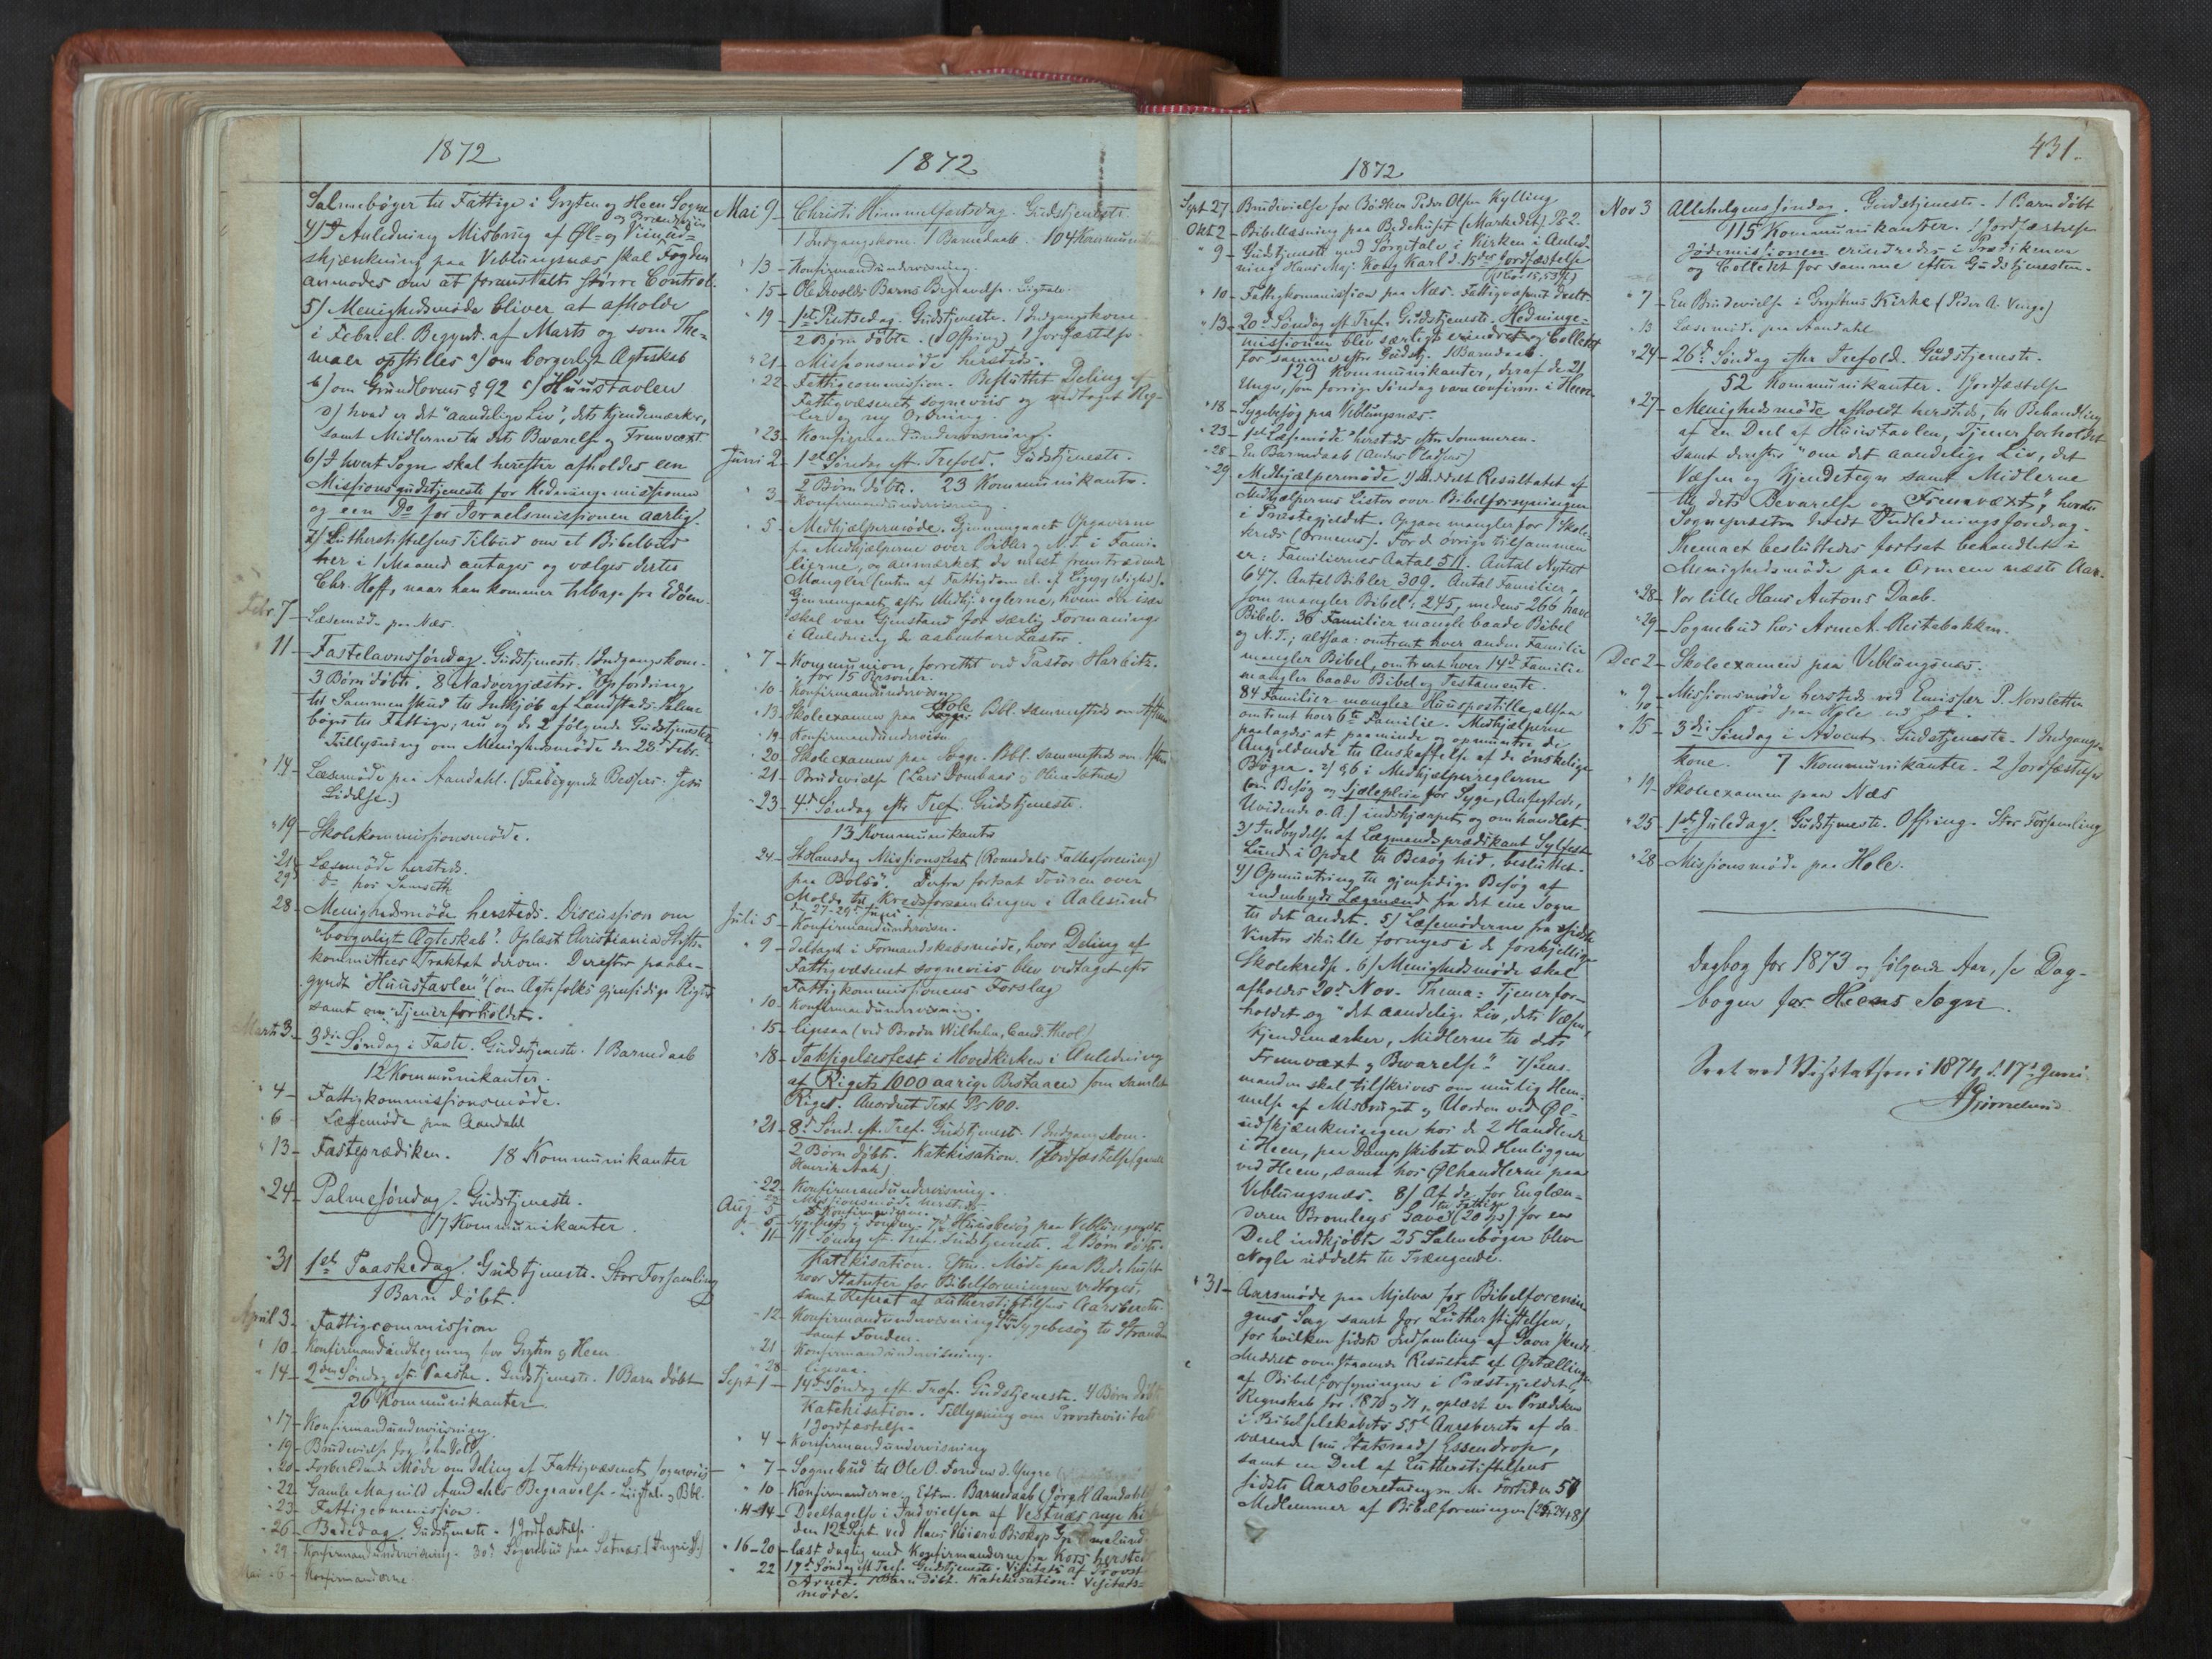 1872
Salmebøger til Fattige i Grytten og Heen Sogne
og Brændeviin
4) I Anledning Misbrug af Øl- og Viinud-
skjænkning paa Veblungsnæs skal Fogden
anmodes om at foranstalte større Control.
5) Menighedsmøde bliver at afholde
i Febr. el. Begynd. af Marts og som The-
maer opstilles a) om borgerligt Ægteskab
b) om Grundlovens § 92 c) Huustavlen
d) hvad er det "aandelige Liv", dets Kjendemærker,
samt Midlerne til dets Bevarelse og Fremvæxt
6) I hvert Sogn skal herefter afholdes een
Missionsgudstjeneste for Hedningemissionen
og een Do for Israelsmissionen aarlig.
7) Lutherstiftelsens Tilbud om et Bibelbud
her i 1 Maaned antages og vælges dertil
Chr. Hoff, naar han kommer tilbage fra Edøen.
Febr. 7 - Læsemøde paa Næs.
11 - Fastelavnssøndag. Gudstjeneste. 1 Indgangskone.
3 Børn døbte. 8 Nadvergjæster. Opfordring
til Sammenskud til Indkjøb af Landstads Salme-
bøger til Fattige; nu og de 2 følgende Gudstjenester
Tillysning om Menighedsmøde den 28de Febr.
" 14 - Læsemøde paa Aandahl. (Paabegyndt Bessers Jesu
Lidelse.)
" 19 - Skolekommissionsmøde.
" 21 - Læsemøde hersteds.
29 do hos Samseth
28 - Menighedsmøde hersteds. Discussion om
"borgerligt Ægteskab". Oplæst Christiania Stifts-
kommittees Traktat derom. Derefter paabe-
gyndt "Huustavlen" (om Ægtefolks gjensidige Pligter
samt om Tjenerforholdet.
Marts 3 - 3die Søndag i Faste. Gudstjeneste. 1 Barnedaab
12 Kommunikanter.
" 4 - Fattigkommissionsmøde.
" 6 - Læsemøde paa Aandahl
" 13 - Fasteprædiken. 18 Kommunikanter
" 24 - Palmesøndag. Gudstjeneste.
17 Kommunikanter.
" 31 1ste Paaskedag. Gudstjeneste. Stor Forsamling
1 Barn døbt.
April 3 - Fattigcommission
" 10 - Konfirmandindtegning for Grytten & Heen
" 14 - 2den Søndag eft. Paaske. Gudstjeneste. 1 Barn døbt
26 Kommunikanter
" 17 - Konfirmandundervisning.
" 19 - Brudevielse for John Vold
" 20 - Forberedende Møde om Deling af Fattigvæsenet sogneviis
" 22 - Gamle Magnild Aandahls Begravelse. Liigtale & Bbl.
" 23 - Fattigcommission.
" 26 - Bededag. Gudstjeneste. 1 Jordfæstelse
" 29 - Konfirmandundervisning. 30d Sognebud paa Sætnæs
Mai 6 - Konfirmanderne
1872
Mai 9 - Christi Himmelfartsdag. Gudstjeneste.
1 Indgangskone. 1 Barnedaab. 104 Kommunikanter
" 13 - Konfirmandundervisning.
" 15 - Ole Devolds Barns Begravelse. Liigtale.
" 19 - 1ste Pintsedag. Gudstjeneste. 1 Indgangskone.
2 Børn døbte. (Offring) 1 Jordfæstelse.
" 21 - Missionsmøde hersteds.
" 22 - Fattigcommission. Besluttet Deling af
Fattigvæsenet sogneviis og vedtaget Reg-
ler og ny Ordning.
" 23 - Konfirmandundervisning.
Juni 2 - 1ste Søndag eft. Trefold. Gudstjeneste.
2 Børn døbte. 23 Kommunikanter.
" 3 - Konfirmandundervisning.
" 5 - Medhjælpermøde. Gjennemgaaet Opgaverne
fra Medhjælperne over Bibler & N.T. i Fami-
lierne, og anmærket de mest fremtrædende
Mangler (enten af Fattigdom el. af Ligegyldighed).
Gjennemgaaet, efter Medhj.reglerne, hvem der især
skal være Gjenstand for særlig Formaninge
i Anledning de aabenbare Laster.
" 7 - Kommunion, forrettet ved Pastor Harbitz.
for 15 Personer.
" 10 - Konfirmandundervisn.
" 13 - Skoleexamen paa Hole. Bbl. sammesteds om Aftenen
" 19 - Konfirmandundervisn.
" 20 - Skoleexamen paa Sogge. Bbl. sammesteds om Aftenen
" 21 - Brudevielse (Lars Dombaas & Olina Sætnæs)
" 23 - 4de Søndag efter Tref. Gudstjeneste.
13 Kommunikanter
" 24 - St. Hansdag Missionsfest (Romsdals Fællesforening)
paa Bolsø. Derfra fortsat Touren over
Molde til Kredsforsamlingen i Aalesund
den 27-29de Juni.
Juli 5 - Konfirmandundervisn.
" 9 - Deltaget i Formandskabsmøde, hvor Deling af
Fattigvæsenet sogneviis blev vedtaget efter
Fattigkommissionens Forslag
" 10 - Konfirmandundervisning.
" 15 - ligesaa (ved Broder Wilhelm, Cand. theol)
" 18 - Taksigelsesfest i Hovedkirken i Anledning
af Rigets 1000 aarige Bestaaen som samlet
Riget. Anordnet Text Ps 100.
" 21 - 8de Sønd. eft. Tref. Gudstjeneste. 1 Indgangskone.
2 Børn døbt. Katekisation. 1 Jordfæstelse (gamle
Henrik Aak).
" 22 - Konfirmandundervisning.
Missionsmøde hersteds.
Aug 5 - Konfirmanderne.
" 6 - Sygebesøg 7de Huusbesøg paa Veblungsnæs.
" 11 - 11te Søndag eft. Tref. Gudstjeneste. 2 Børn døbte.
Katekisation. Eftm. Møde paa Bedehuset
hvor Statuter for Bibelforeningen vedtoges,
samt Referat af Lutherstiftelsens Aarsberetn.
" 12 - Konfirmandundervisning Eftm Sygebesøg til Stranden
samt Fonden.
" 21 - Konfirmandundervisning.
" 28 - ligesaa.
Sept 1 - 14de Søndag eft. Tref. Gudstjeneste. 4 Børn døbt
Katekisation. Tillysning om Provstevisitats
1 Jordfæstelse.
" 4 - Konfirmandundervisning
" 7 - Sognebud til Ole O. Fonden d. Yngre
" 10 - Konfirmanderne, Eftm. Barnedaab (Jørg. K Aandahls)
" 11-14 - Deeltagelse i Indvielsen af Vestnæs nye Kirke
den 12te Sept. ved Hans Høiærv. Biskop Grimelund
" 16-20 - læst daglig med Konfirmanderne fra Kors hersteds
" 22 17de Søndag eft Tref. Gudstjeneste. Visitats af Provst
Arnet. 1 Barn døbt. Katekisation. Visitats-
møde.
1872
Sept 27 Brudevielse for Bødker Peder Olsen Kylling
Okt 2 - Bibellæsning paa Bedehuset (Markedet) Ps 2.
" 9 - Gudstjeneste med Sørgetale i Kirken i Anled-
ning Hans Maj: Kong Karl d. 15des Jordfæstelse
(1 Cor. 15, 53ff)
" 10 - Fattigkommission paa Næs. Fattigvæsenet deelt.
" 13 - 20de Søndag eft. Tref. Gudstjeneste. Hedninge-
missionen blev særligt erindret og Collekt
for samme efter Gudstj. 1 Barnedaab.
129 Kommunikanter, deraf de 21
Unge, som forrige Søndag vare confirm. i Heen.
" 18 - Sygebesøg paa Veblungsnæs.
" 23 - 1ste Læsemøde hersteds efter Sommeren.
" 28 - En Barnedaab (Anders Pladsens)
" 29 - Medhjælpermøde 1) Meddelt Resultatet af
Medhjælpernes Lister over Bibelforsyningen
i Præstegjeldet. Opgave mangler for 1 Skole-
kreds (Ormems). For de øvrige tilsammen
er: Familiernes Antal 511. Antal Nytest
647. Antal Bibler 309. Antal Familier,
som mangler Bibel: 245, medens 266 have
Bibel. 36 Familier mangle baade Bibel
og N.T.; altsaa: omtrent hver anden Familie
mangler Bibel, omtrent hver 14de Familie
mangler baade Bibel og Testamente.
84 Familier mangler Huuspostille, altsaa
omtrent hver 6te Familie. Medhjælperne
paalagdes at paaminde og opmuntre de
Angjeldende til Anskaffelse af de ønskelige
Bøger. 2) § 6 i Medhjælperreglerne
(om Besøg og Sjælepleie for Syge, Anfegtede,
Uvidende o. A.) indskjærpet og omhandlet.
3) Indbydelse af Lægmandsprædikant Sylfest
Lund i Opdal til Besøg hid, besluttet.
4) Opmuntring til gjensidige Besøg af
indenbygds Lægmænd fra det ene Sogn
til det andet. 5) Læsemøderne fra sidste
Vinter skulle fornyes i de forskjellige
Skolekredse. 6) Menighedsmøde skal
afholdes 20de Nov. Thema: Tjenerfor-
holdet og "det aandelige Liv, dets Væsen,
Kjendemærker, Midlerne til dets
Fremvæxt & Bevarelse". 7) Lens-
manden skal tilskrives om mulig Hem-
melse af Misbruget & Uorden ved Øl-
udskjænkningen hos de 2 Handlende
i Heen, paa Dampskibet ved Henliggen
ved Heen, samt hos Ølhandlerne paa
Veblungsnæs. 8) Af de for Englæn-
til Fattige
deren Bromleys Gave (20 Spd) for en
Deel indkjøbte 25 Salmebøger bleve
Nogle uddelte til Trængende.
" 31 - Aarsmøde paa Mjelva for Bibelforenin-
gens Sag samt for Lutherstiftelsen,
for hvilken sidste Indsamling af Gaver skeede.
Meddelt ovenstaaende Resultat af Optællingen
af Bibelforsyningen i Præstegjeldet,
Regnskab for 1870 & 71, oplæst en Prædiken
i Bibelselskabets 55de Aarsberetn. af da-
værende (nu Statsraad) Essendrop,
samt en Deel af Lutherstiftelsens
sidste Aarsberetning m. M. Fortiden 57
Medlemmer af Bibelforeningen (25+24+8)
431.
Nov 3 Allehelgenssøndag. Gudstjeneste. 1 Barn døbt
115 Kommunikanter. 1 Jordfæstelse
Jødemissionen erindredes i Prædikenen
og Collekt for samme efter Gudstjenesten.
" 7 - En Brudevielse i Gryttens Kirke (Peder A. Venge)
" 13 Læsemøde paa Aandahl
" 24 - 26de Søndag efter Trefold. Gudstjeneste.
52 Kommunikanter. 1 Jordfæstelse
" 27 - Menighedsmøde afholdt hersteds, til Behandling
af en Deel af Huustavlen, Tjenerforholdet
samt derefter "om det aandelige Liv, det
Væsen og Kjendetegn samt Midlerne
til dets Bevarelse og Fremvæxt", hvortil
Sognepræsten holdt Indledningsforedrag.
Themaet besluttedes fortsat behandlet i
Menighedsmøde paa Ormem næste Aar.
" 28 - Vor lille Hans Antons Daab.
" 29 - Sognebud hos Arne A. Reitebakken.
Dec 2 - Skoleexamen paa Veblungsnæs.
" 9 - Missionsmøde hersteds ved Emissær P. Norsletten
10 - do paa Hole ved do.
" 15 - 3die Søndag i Advent. Gudstjeneste. 1 Indgangs-
kone. 7 Kommunikanter. 2 Jordfæstelser
" 19 - Skoleexamen paa Næs
" 25 - 1ste Juledag. Gudstjeneste. Offring. Stor Forsamling
" 28 - Missionsmøde paa Hole.
Dagbog for 1873 og følgende Aar, se Dag-
bogen for Heens Sogn.
Seet ved Visitatsen i 1874 d. 17de Juni.
A Grimelund